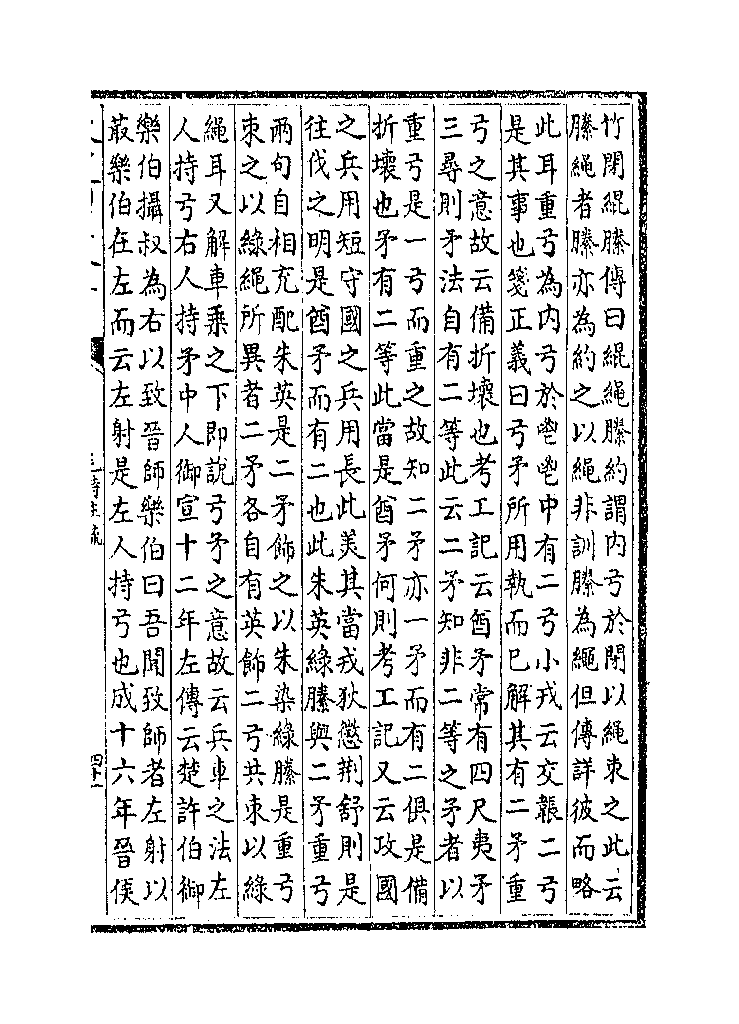 竹閉緄縢傳曰緄繩縢約謂内弓於閉以繩束之此云
縢繩者縢亦為約之以繩非訓縢為繩但傳詳彼而略
此耳重弓為内弓於鬯鬯中有二弓小戎云交韔二弓
是其事也箋正義曰弓矛所用執而已解其有二矛重
弓之意故云備折壞也考工記云酋矛常有四尺夷矛
三尋則矛法自有二等此云二矛知非二等之矛者以
重弓是一弓而重之故知二矛亦一矛而有二俱是備
折壞也矛有二等此當是酋矛何則考工記又云攻國
之兵用短守國之兵用長此美其當戎狄懲荆舒則是
往伐之明是酋矛而有二也此朱英綠縢與二矛重弓
兩句自相充配朱英是二矛飾之以朱染綠縢是重弓
束之以綠繩所異者二矛各自有英飾二弓共束以綠
繩耳又解車乘之下即說弓矛之意故云兵車之法左
人持弓右人持矛中人御宣十二年左傳云楚許伯御
樂伯攝叔為右以致晉師樂伯曰吾聞致師者左射以
菆樂伯在左而云左射是左人持弓也成十六年晉使
詩注疏